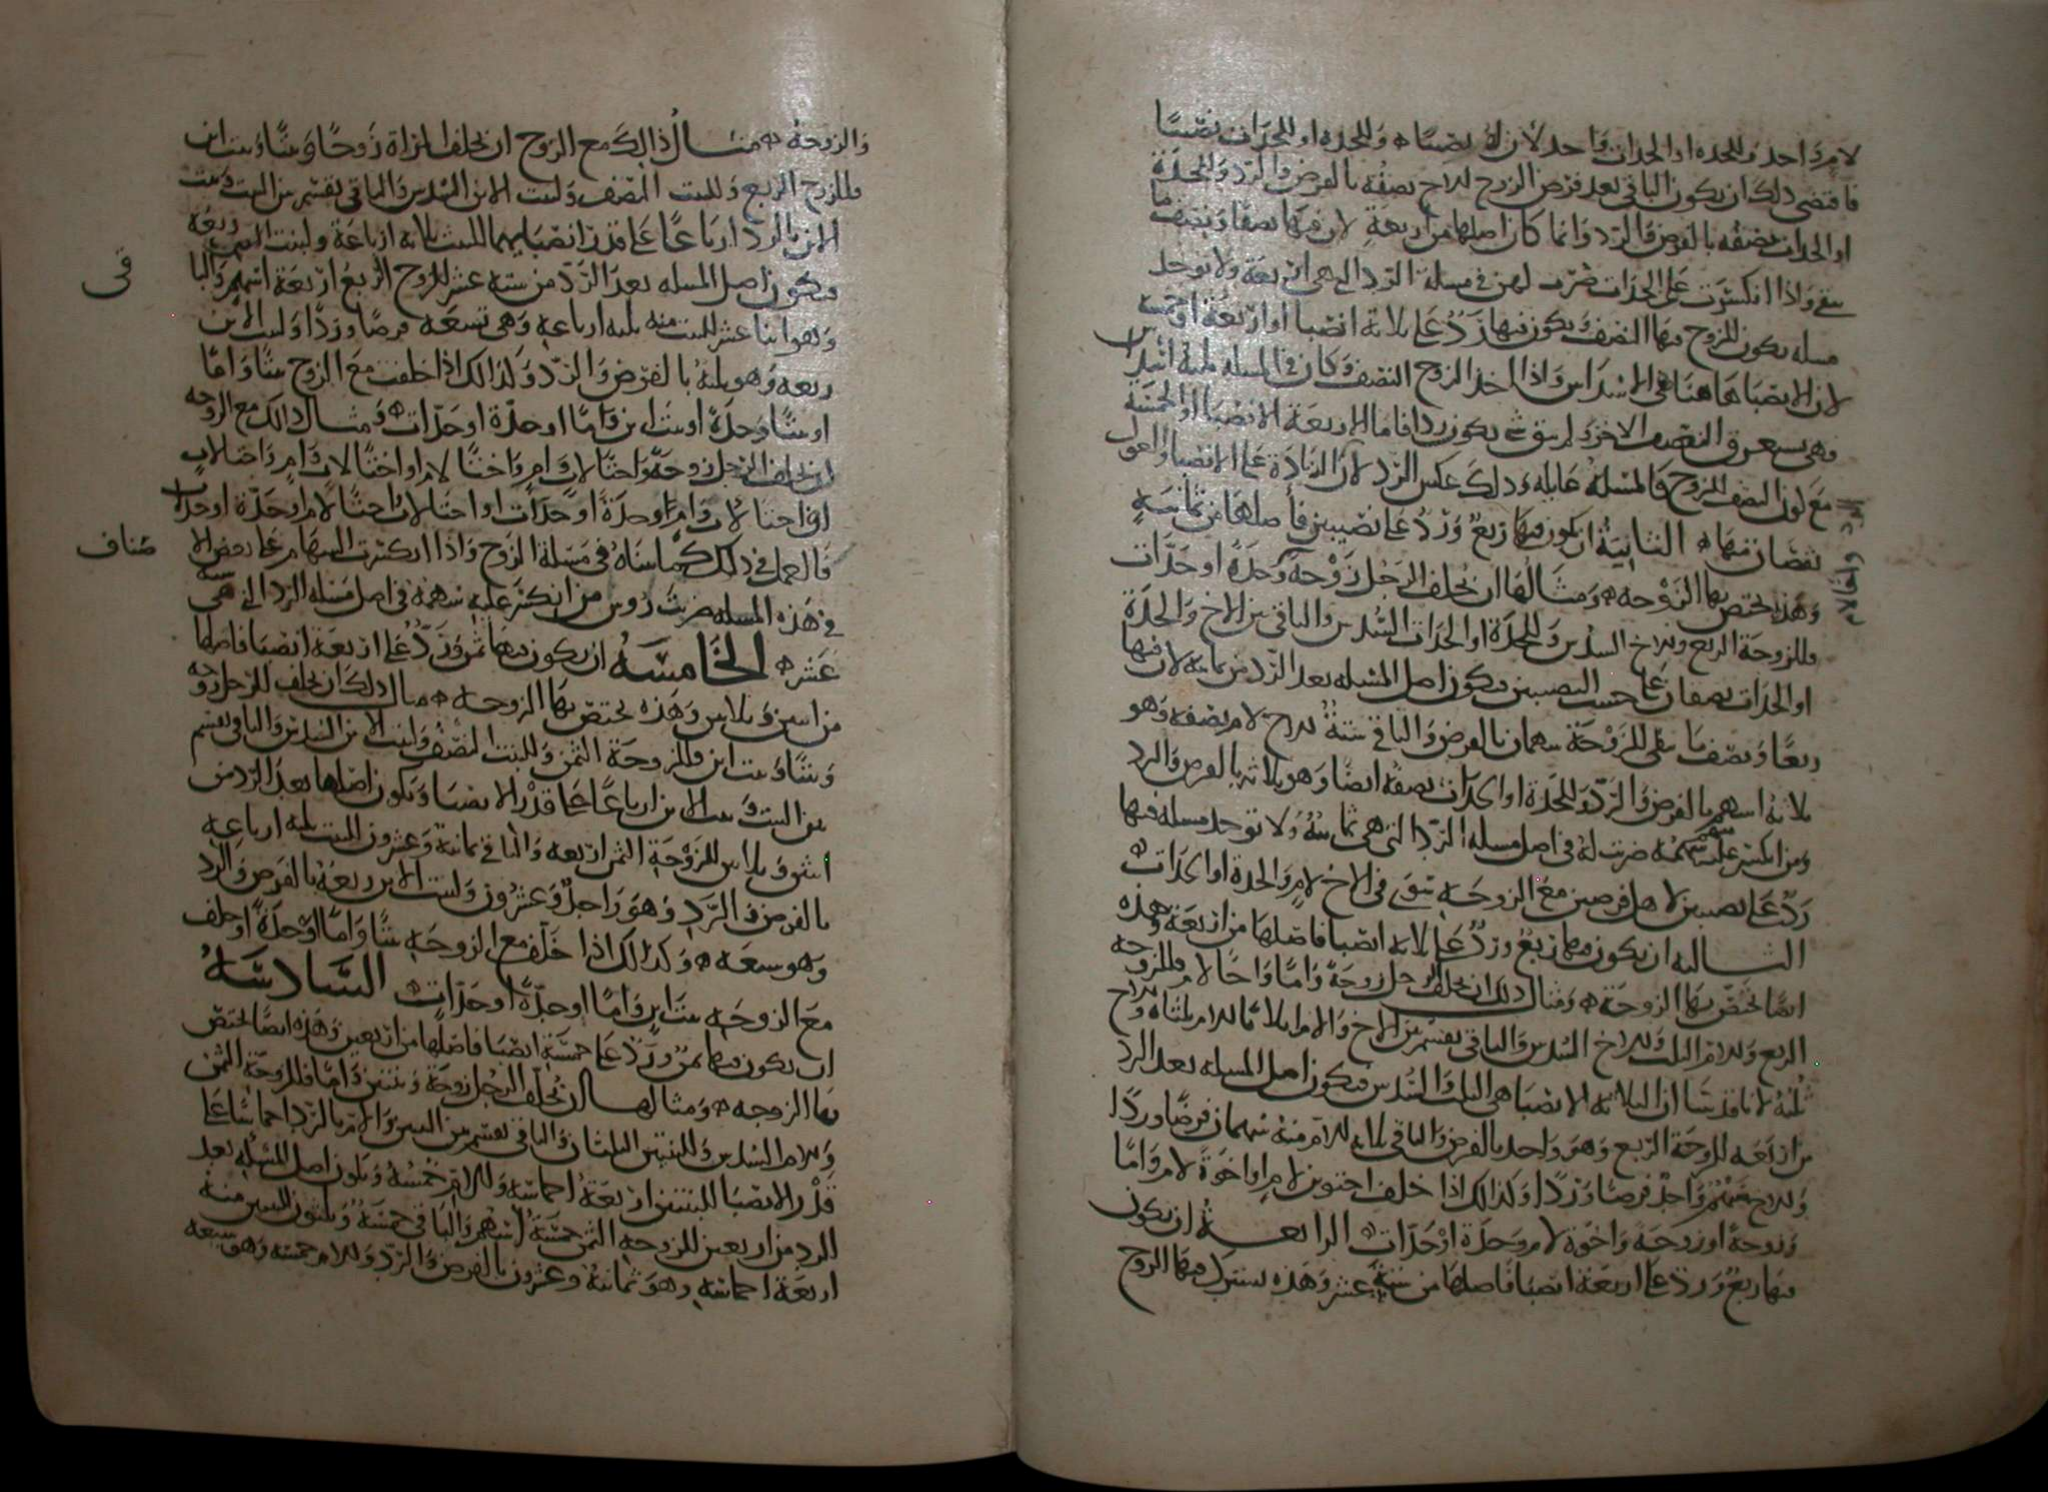 لام واحد وللجده او الجدات واحد لان له نصيبا وللجده او للجدات نصيبا
فاقتضى ذلك ان يكون الباقي بعد فرض الزوج للاخ نصفه بالفرض والرد وللجدة
او الجدات نصفه بالفرض والرد وانما كان اصلها من اربعة لان فيها نصفا ونصف ما
بقي واذا انكسرت على الجدات ضربت لهن في مسلة الرد التي هي اربعة ولا توجد
مسله يكون للزوج فيها النصف ويكون فيها رد على ثلاثة انصبا او اربعة او خمسه
لان الانصبا هاهنا هي الاسداس واذا اخذ الزوج النصف وكان في المسله ثلثة اسداس
فهي تستغرق النصف الاخر ولم يبق شي يكون ردا فاما الاربعة الانصبا او الخمسة
مع كون النصف للزوج فالمسلة عايله وذلك عكس الرد لان الرد زيادة على الانصبا والعول
نقصان منها الثانية ان يكون فيها ربع ورد على نصيبين فاصلها من ثمانية
وهذه تختص بها الزوجه ومثالها ان يخلف الرجل زوجه وجدة او جدات
فللزوجة الربع وللاخ السدس وللجدة او الجدات السدس والباقي بين الاخ والجدة
او الجدات نصفان على حسب النصيبين فيكون اصل المسله بعد الرد من ثمانية لان فيها
ربعا ونصف ما بقي للزوجة سهمان بالفرض والباقي ستة للاخ لام نصفه وهو
ثلاثة اسهم بالفرض والرد وللجدة او الجدات نصفه ايضا وهو ثلاثه بالفرض والرد
ومن انكسر عليه سهمه ضربت له في اصل مسله الرد التي هي ثمانية ولا توجد مسله فيها
رد على نصيبين لاهل فرضين مع الزوجه سوى في الاخ لام والجدة او الجدات
الثالثه ان يكون فيها ربع ورد على ثلاثه انصبا فاصلها من اربعة وهذه
ايضا تختص بها الزوجة ومثال ذلك ان يخلف الرجل زوجة واما واخا لام فللزوجه
الربع وللام الثلث وللاخ السدس والباقي يقسم بين الاخ والام اثلاثا للام ثلثاه وللاخ
ثلثه لانا قد بينا ان الثلاثه الانصبا هي الثلث والسدس فيكون اصل المسله بعد الرد
من اربعه للزوجة الربع وهو واحد بالفرض والباقي ثلاثه للام منه سهمان فرضا وردا
وللاخ سهم واحد فرضا وردا وكذلك اذا خلف اختين لام او اخوة لام واما
وزوجة او زوجة واخوة لام وجدة او جدات الرابعة ان يكون
فيها ربع ورد على اربعة انصبا فاصلها من ستة عشر وهذه يشترك فيها الزوج
والزوجة مثال ذلك مع الزوج ان تخلف المراة زوجا وبنتا وبنت ابن
فللزوج الربع وللبنت النصف ولبنت الابن السدس والباقي يقسم بين البنت وبنت
الابن بالرد ارباعا على قدر انصبايهما للبنت ثلاثه ارباعه ولبنت الابن ربعه
فيكون اصل المسله بعد الرد من سته عشر للزوج الربع اربعة اسهم والبا
قي
وهو اثنا عشر للبنت منه ثلثه ارباعه وهي تسعه فرضا وردا ولبنت الابن
ربعه وهو ثلثه بالفرض والرد وكذلك اذا خلفت مع الزوج بنتا واما
او بنتا وجدة او بنت ابن واما او جدة او جدات ومثال ذلك مع الزوجه
ان يخلف الرجل زوجة واختا لاب وام واختا لام او اختا لاب وام واختا لاب
او اختا لاب وام وجدة او جدات او اختا لاب واختا لام او جدة او جدات
فالعمل في ذلك كما بيناه في مسلة الزوج واذا انكسرت السهام على بعض الا
صناف
في هذه المسله ضربت رؤس من انكسر عليه سهمه في اصل مسله الرد التي هي سته
عشر الخامسه ان يكون فيها ثمن ورد على اربعة انصبا فاصلها
من اثنين وثلاثين وهذه تختص بها الزوجه مثال ذلك ان يخلف الرجل زوجه
وبنتا وبنت ابن فللزوجة الثمن وللبنت النصف ولبنت الابن السدس والباقي يقسم
بين البنت وبنت الابن ارباعا على قدر الانصبا ويكون اصلها بعد الرد من
اثنين وثلاثين للزوجة الثمن اربعه والباقي ثمانية وعشرون للبنت ثلثه ارباعه
بالفرض والرد وهو واحد وعشرون ولبنت الابن ربعه بالفرض والرد
وهو سبعه وكذلك اذا خلف مع الزوجه بنتا واما او جدة او خلف
مع الزوجه بنت ابن واما او جدة او جدات السادسة
ان يكون فيها ثمن ورد على خمسة انصبا فاصلها من اربعين وهذه ايضا تختص
بها الزوجه ومثالها ان يخلف الرجل زوجة وبنتين واما فللزوجة الثمن
وللام السدس وللبنتين الثلثان والباقي يقسم بين البنتين والام بالرد اخماسا على
قدر الانصبا للبنتين اربعة اخماسه وللام خمسه ويكون اصل المسله بعد
الرد من اربعين للزوجه الثمن خمسة اسهم والباقي خمسة وثلثون للبنتين منه
اربعة اخماسه وهو ثمانية وعشرون بالفرض والرد وللام خمسه وهو سبعه